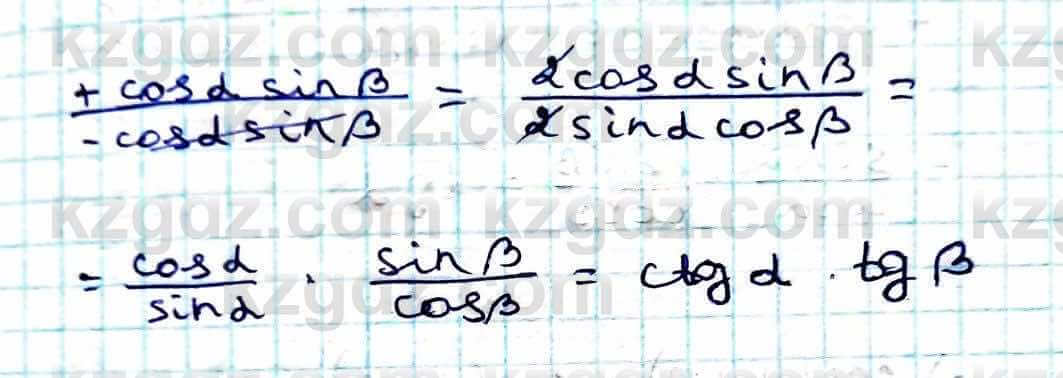 kzgdz.com kzgdz.com kz
+ cosα sinβ / - cosα sinβ = 2cosα sinβ / 2sinα cosβ =
kzgdz.com
kzgdz.com kzgdz.com kz
= cosα / sinα · sinβ / cosβ = ctgα · tgβ
kzgdz.com